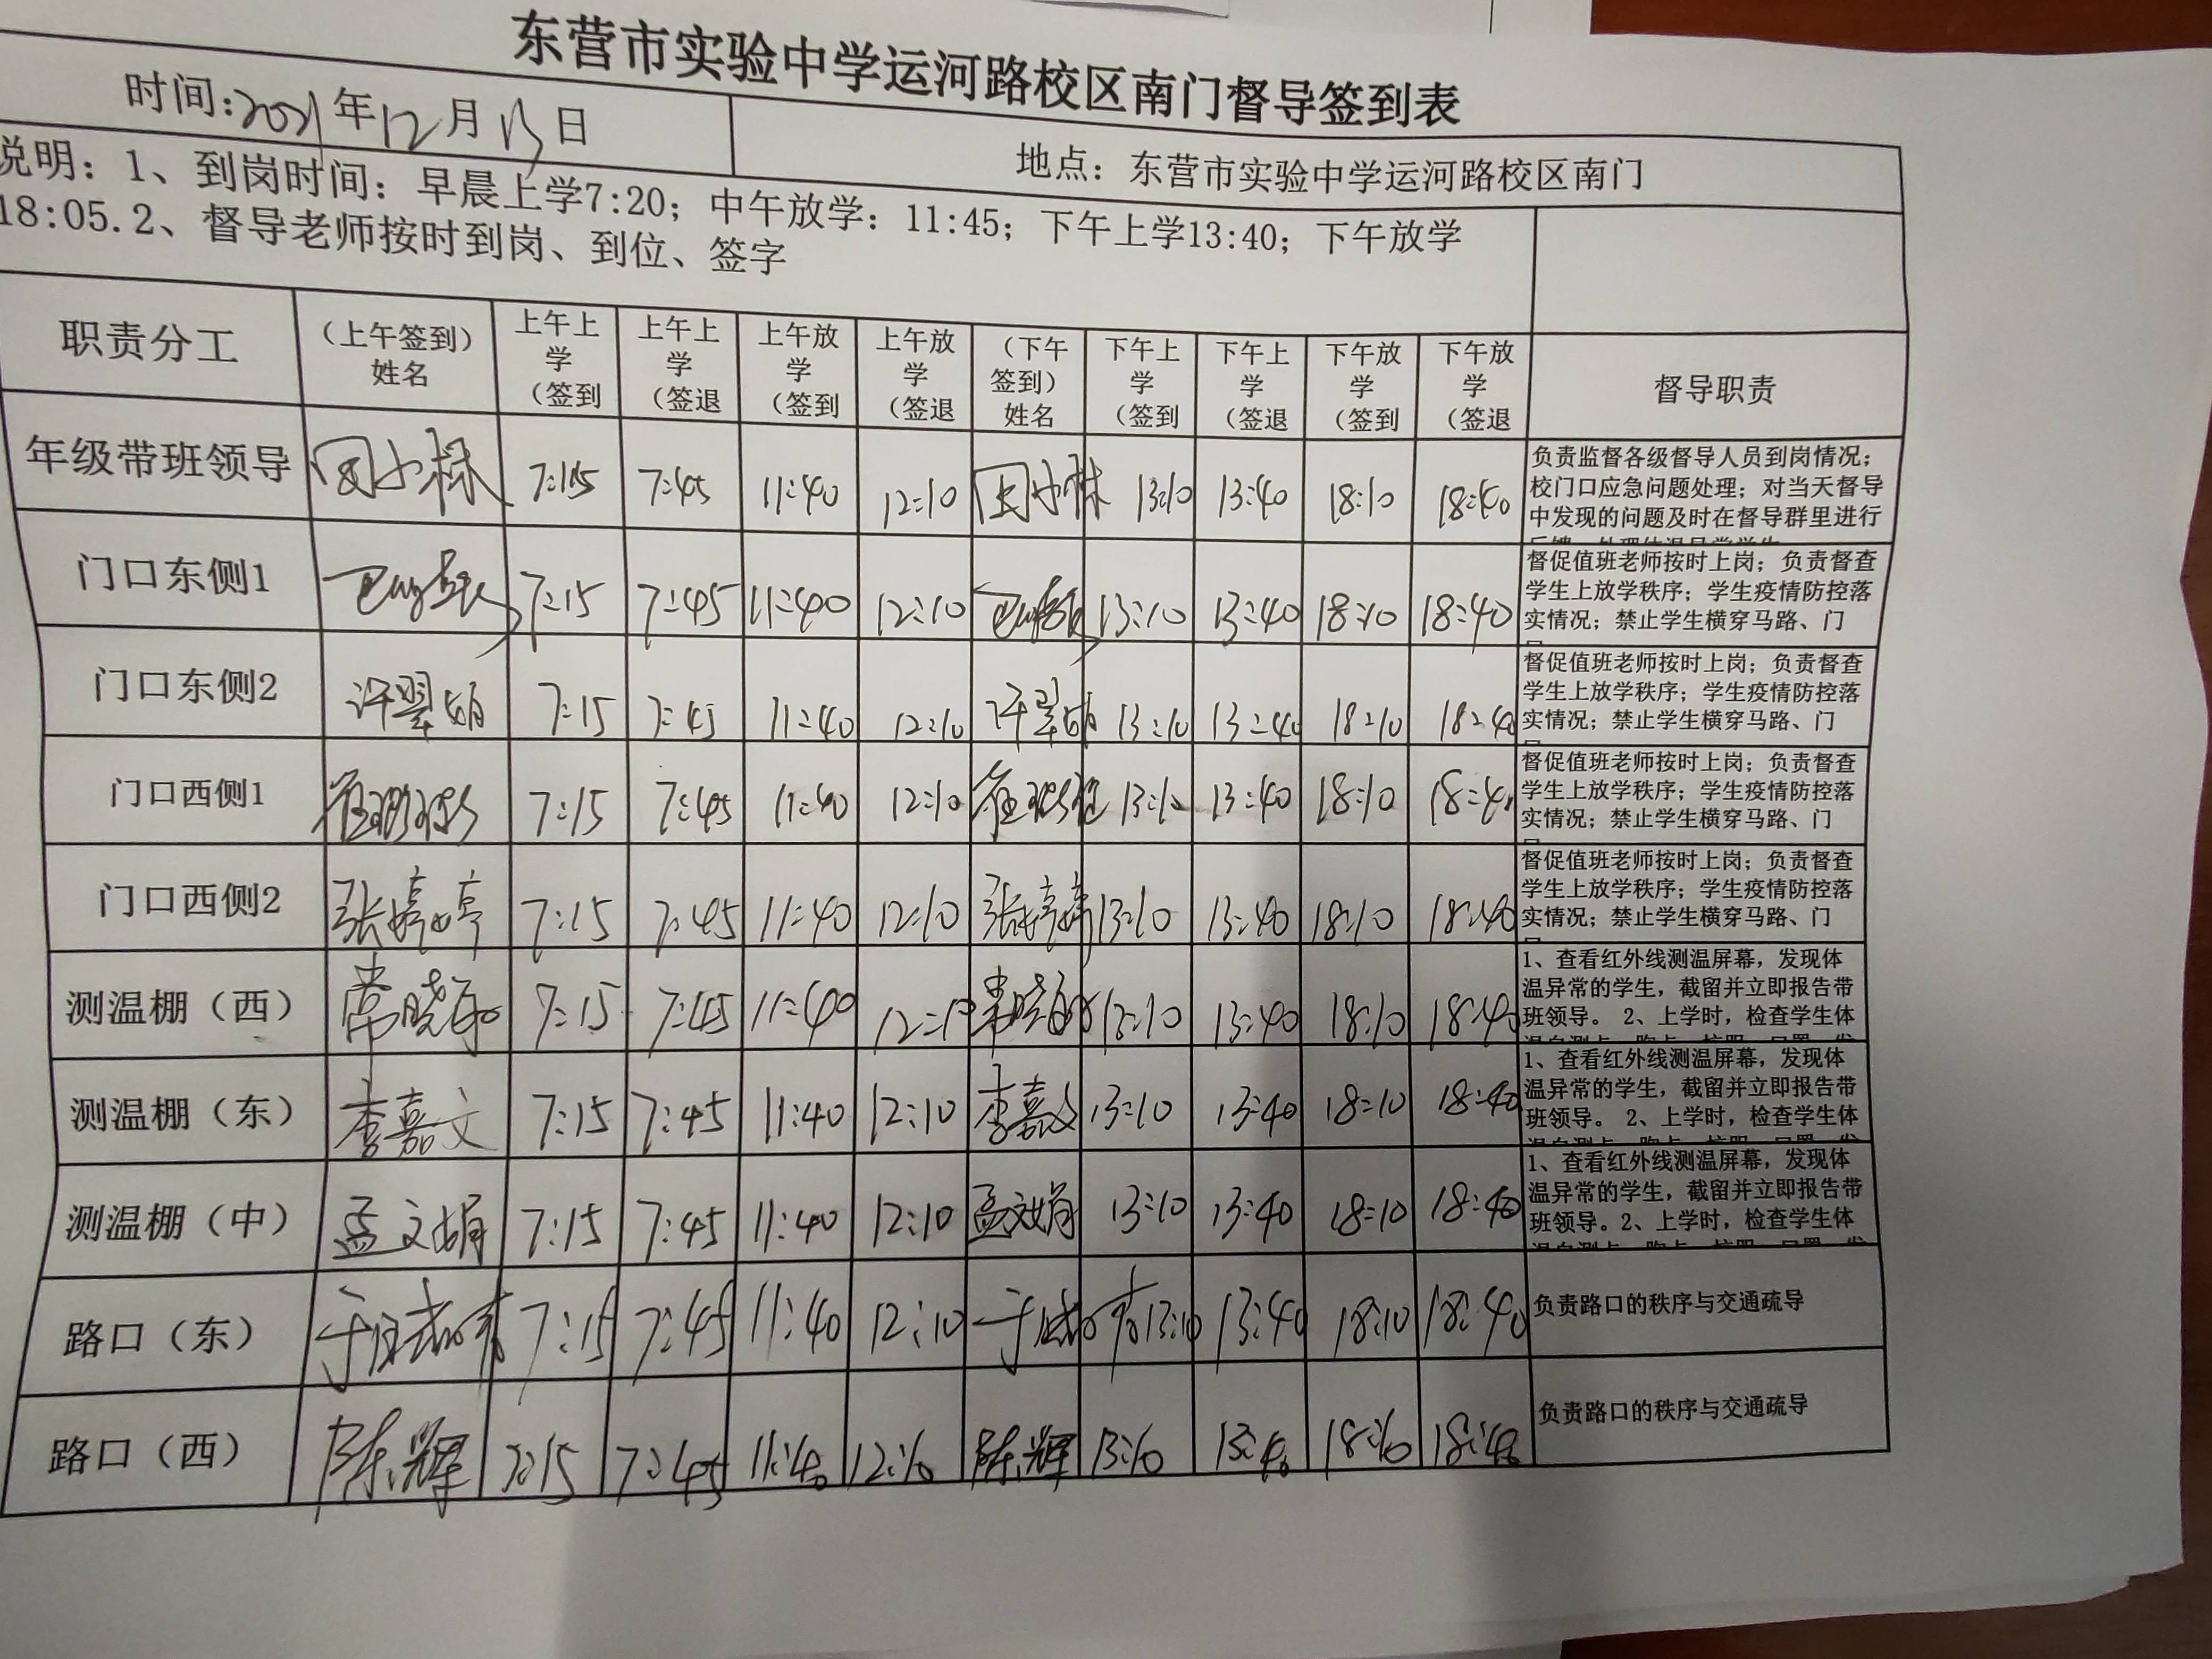 东营市实验中学运河路校区南门督导签到表
时间:2021年12月13日
地点：东营市实验中学运河路校区南门
说明：1、到岗时间：早晨上学7:20；中午放学：11:45；下午上学13:40；下午放学
18:05.2、督导老师按时到岗、到位、签字
职责分工 （上午签到）姓名 上午上学（签到 上午上学（签退 上午放学（签到 上午放学（签退 （下午签到）姓名 下午上学（签到 下午上学（签退 下午放学（签到 下午放学（签退 督导职责
年级带班领导 7:15 7:45 11:40 12:10 13:10 13:40 18:10 18:40
负责监督各级督导人员到岗情况；
校门口应急问题处理；对当天督导
中发现的问题及时在督导群里进行
门口东侧1 7:15 7:45 11:40 12:10 13:10 13:40 18:10 18:40
督促值班老师按时上岗；负责督查
学生上放学秩序；学生疫情防控落
实情况；禁止学生横穿马路、门
门口东侧2 许翠娟 7:15 7:45 11:40 12:10 许翠娟 13:10 13:40 18:10 18:40
督促值班老师按时上岗；负责督查
学生上放学秩序；学生疫情防控落
实情况；禁止学生横穿马路、门
门口西侧1 7:15 7:45 11:40 12:10 13:10 13:40 18:10 18:40
督促值班老师按时上岗；负责督查
学生上放学秩序；学生疫情防控落
实情况；禁止学生横穿马路、门
门口西侧2 张婷婷 7:15 7:45 11:40 12:10 张婷婷 13:10 13:40 18:10 18:40
督促值班老师按时上岗；负责督查
学生上放学秩序；学生疫情防控落
实情况；禁止学生横穿马路、门
测温棚（西） 7:15 7:45 11:40 12:10 13:10 13:40 18:10 18:40
1、查看红外线测温屏幕，发现体
温异常的学生，截留并立即报告带
班领导。 2、上学时，检查学生体
测温棚（东） 李嘉文 7:15 7:45 11:40 12:10 李嘉文 13:10 13:40 18:10 18:40
1、查看红外线测温屏幕，发现体
温异常的学生，截留并立即报告带
班领导。 2、上学时，检查学生体
测温棚（中） 孟文娟 7:15 7:45 11:40 12:10 孟文娟 13:10 13:40 18:10 18:40
1、查看红外线测温屏幕，发现体
温异常的学生，截留并立即报告带
班领导。2、上学时，检查学生体
路口（东） 7:15 7:45 11:40 12:10 13:10 13:40 18:10 18:40 负责路口的秩序与交通疏导
路口（西） 陈辉 7:15 7:45 11:40 12:10 陈辉 13:10 13:40 18:10 18:40 负责路口的秩序与交通疏导